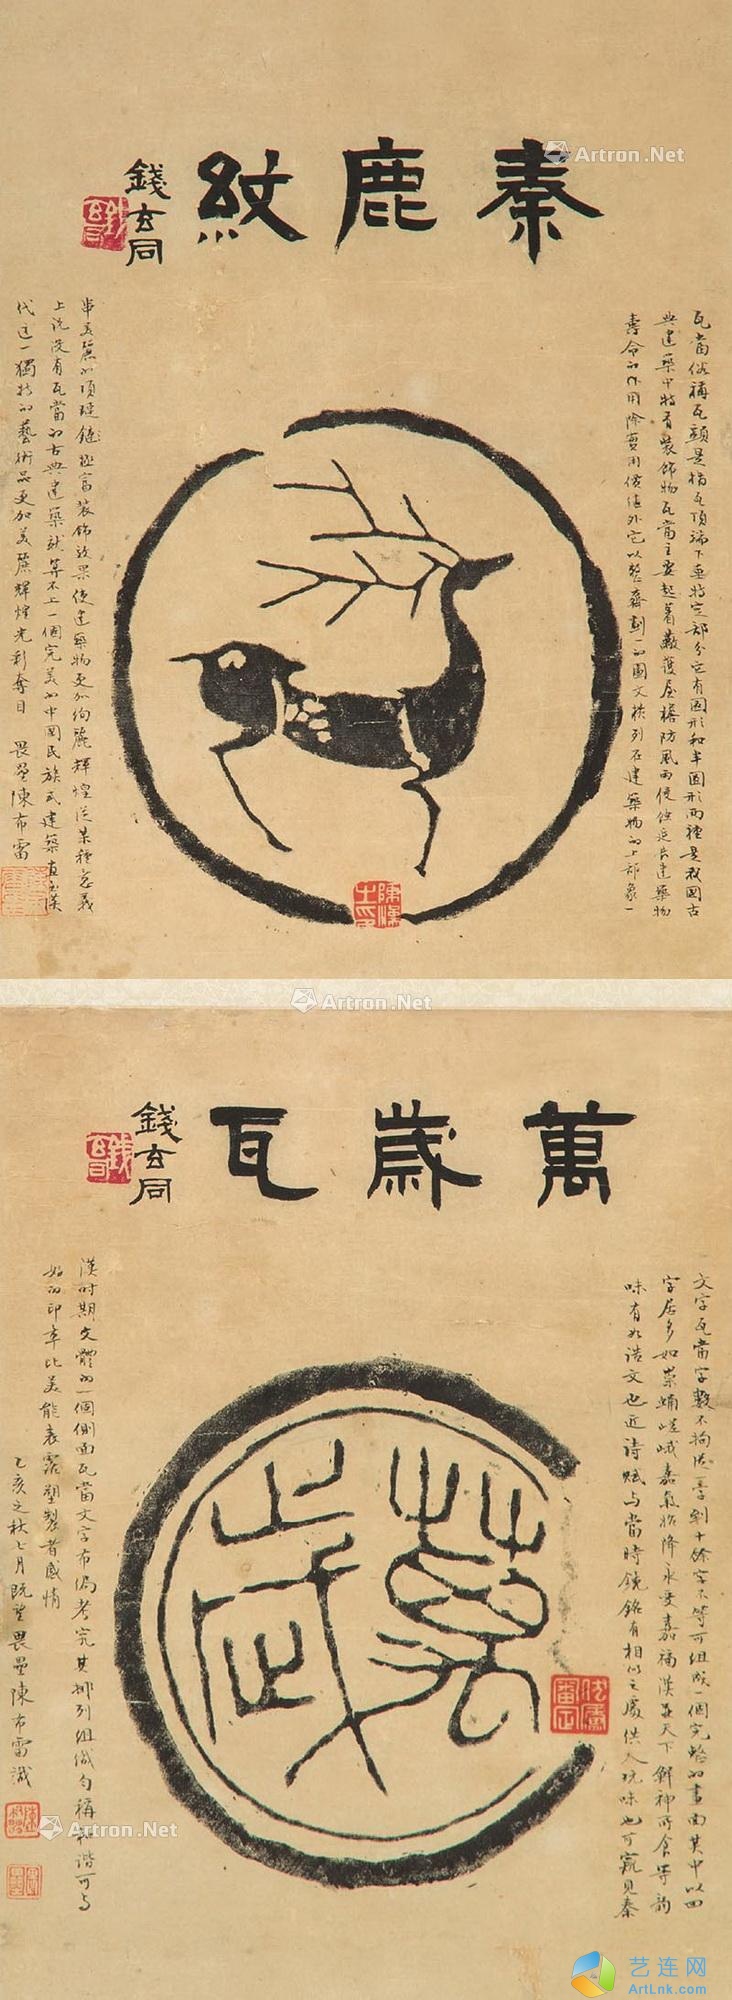 Artron.Net
秦鹿紋
錢玄同
瓦當俗稱瓦頭是指瓦頂端下垂特定部分它有圓形和半圓形兩種是我國古
典建築中特有裝飾物瓦當主要起着蔽護屋檐防風雨侵蝕延長建築物
壽命的作用除實用價值外它以整齊劃一的圖文排列在建築物的上部象一
串美麗的項鏈極富裝飾效果使建築物更加絢麗輝煌從某種意義
上說沒有瓦當的古典建築就算不上一個完美的中國民族式建築直至漢
代這一獨特的藝術品更加美麗輝煌光彩奪目 畏壘陳布雷
Artron.Net
萬歲瓦
錢玄同
文字瓦當字數不拘從一字到十餘字不等可組成一個完整的畫面其中以四
字居多如崇蛹嵯峨嘉氣始降永受嘉福漢并天下鮮神所食等韵
味有如詩文也近詩賦与當時鏡銘有相似之處供人玩味也可窺見秦
漢時期文體的一個側面瓦當文字布偽考究其排列組織勻稱和諧可与
好的印章比美能表露塑製者感情
乙亥之秋七月既望畏壘陳布雷識
萬歲
Artron.Net
艺连网
ArtLnk.com